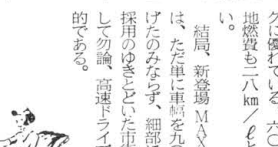 クに優れている。六〇
地燃費も二八km／ℓと
い。
結局、新登場MAX
は、ただ単に車幅を九
げたのみならず、細部
採用のゆきとどいた市
して勿論、高速ドライブ
的である。